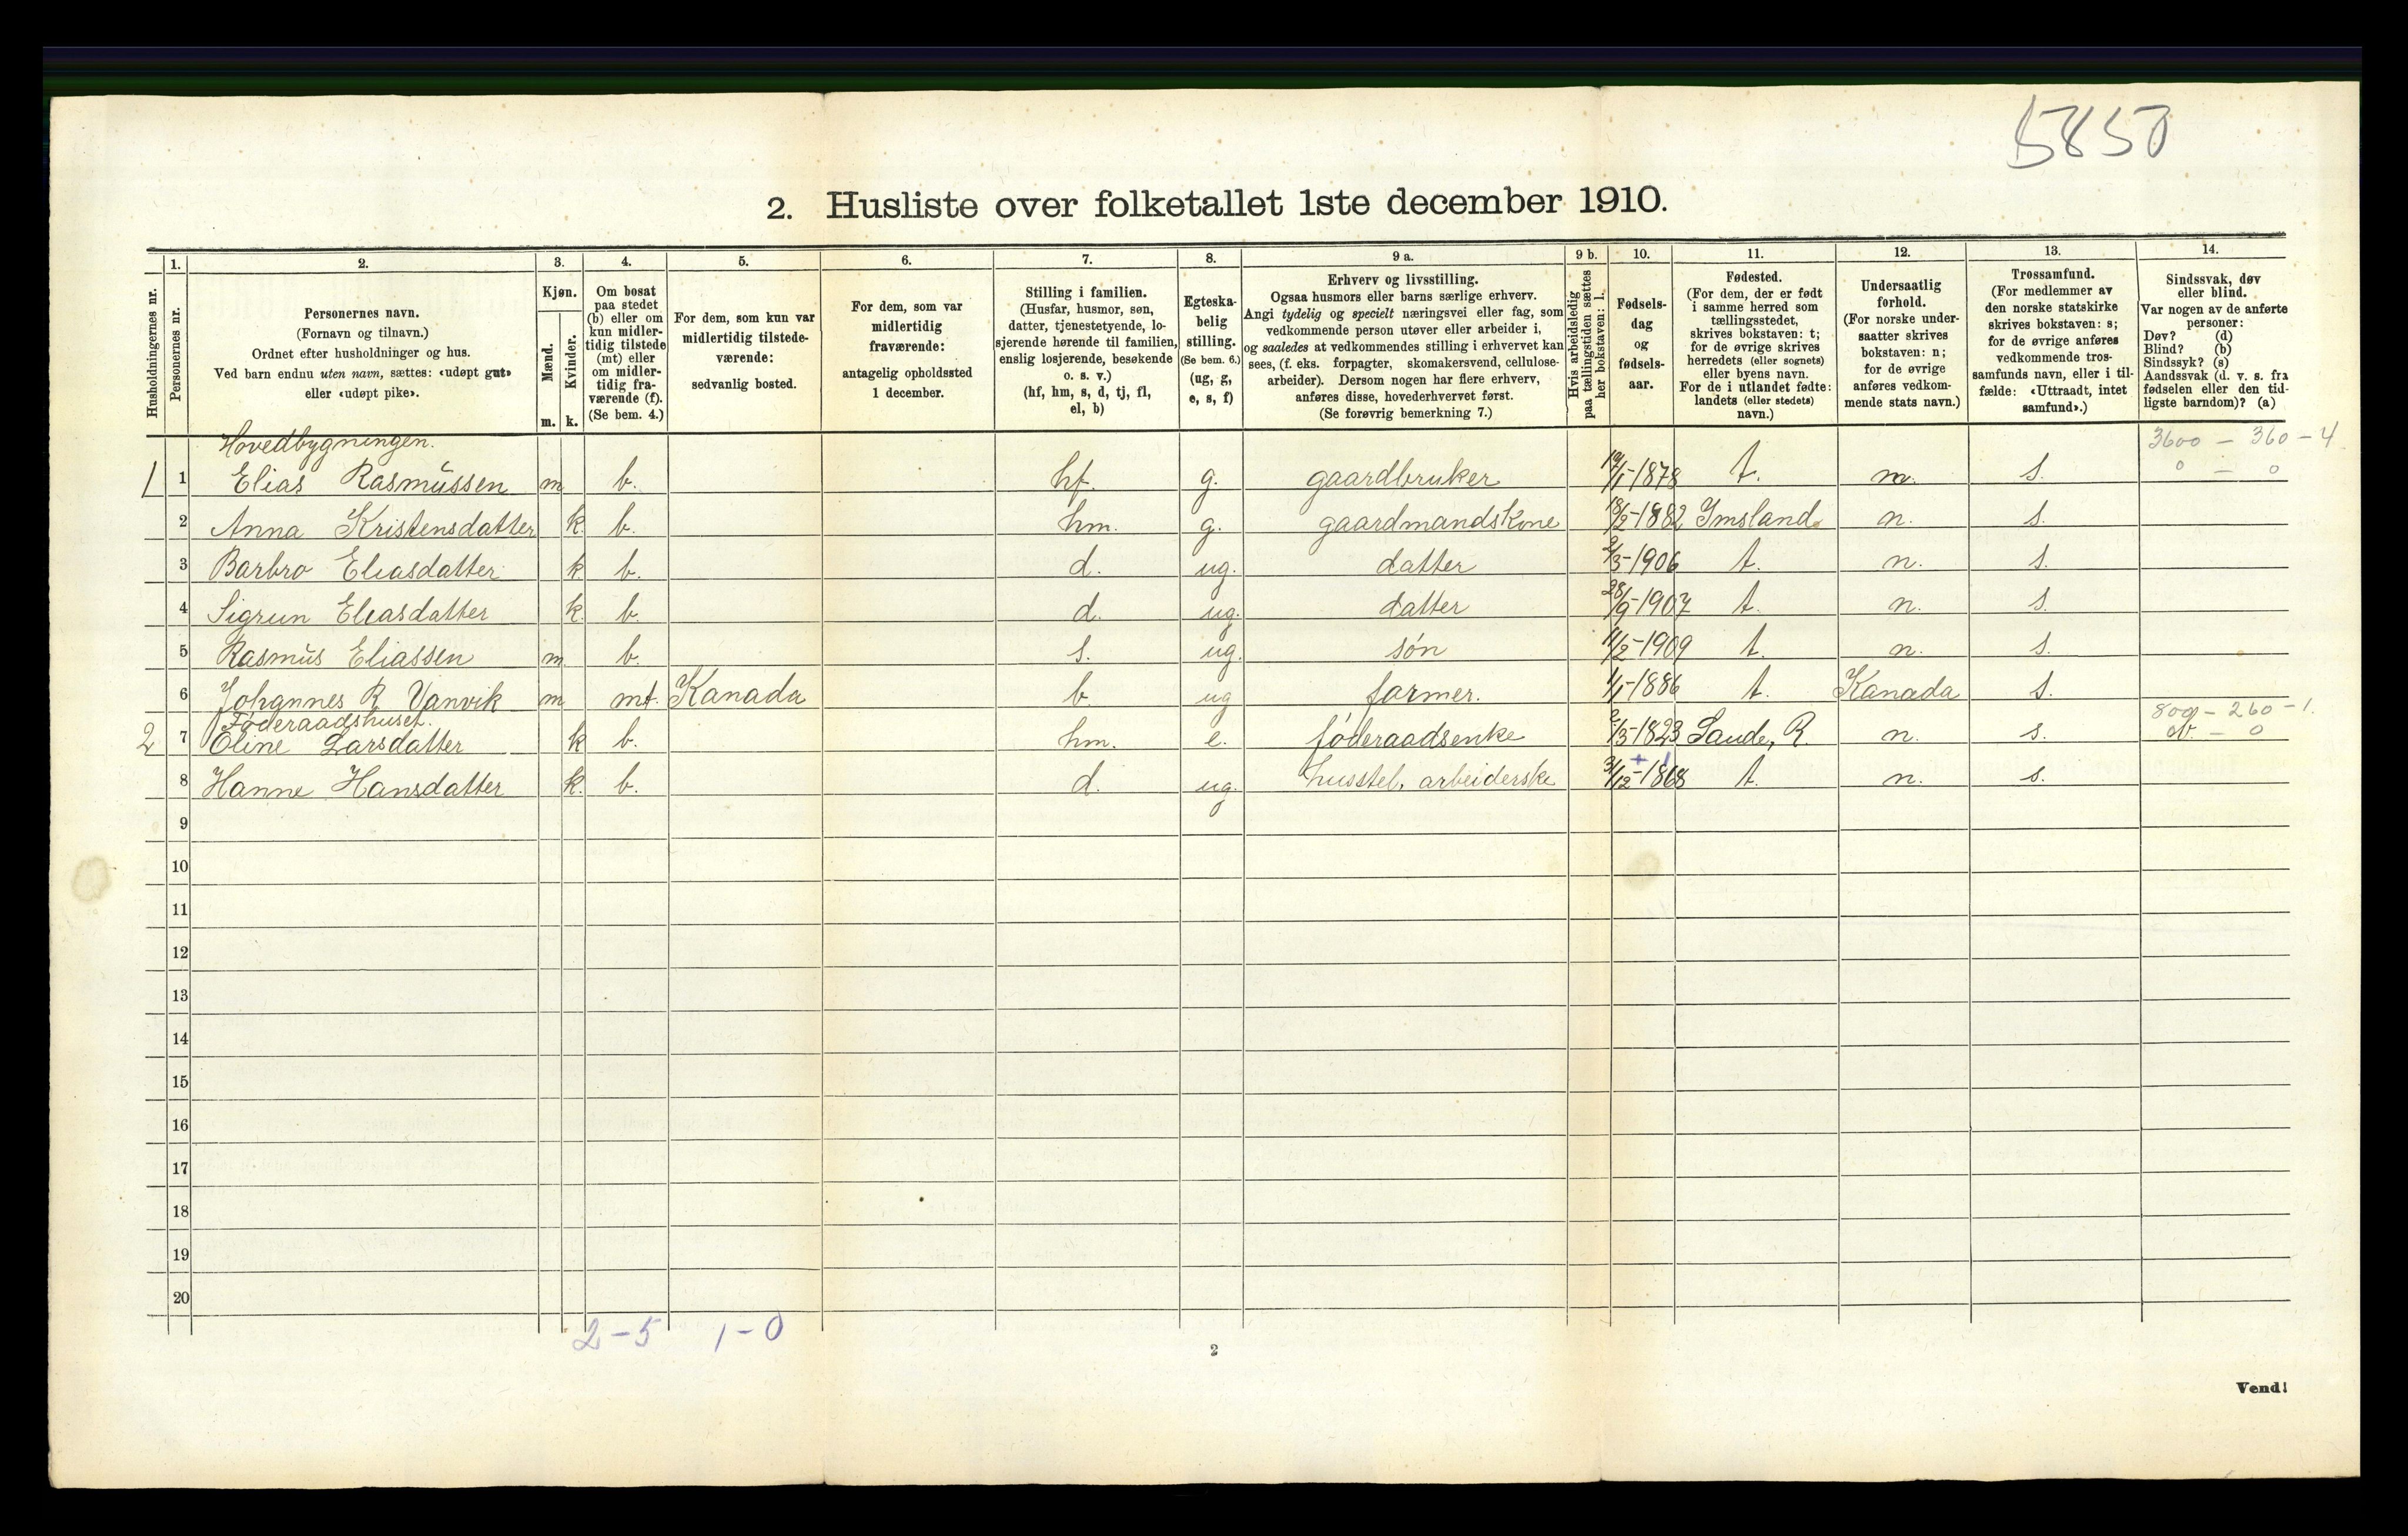 5850
2. Husliste over folketallet 1ste december 1910.
Husholdningernes nr.
1.
Personernes nr.
2.
Personernes navn.
(Fornavn og tilnavn.)
Ordnet efter husholdninger og hus.
Ved barn endnu uten navn, sættes: «udøpt gut»
eller «udøpt pike».
3.
Kjøn.
Mænd.
Kvinder.
m. k.
4.
Om bosat
paa stedet
(b) eller om
kun midler-
tidig tilstede
(mt) eller
om midler-
tidig fra-
værende (f).
(Se bem. 4.)
5.
For dem, som kun var
midlertidig tilstede-
værende:
sedvanlig bosted.
6.
For dem, som var
midlertidig
fraværende:
antagelig opholdssted
1 december.
7.
Stilling i familien.
(Husfar, husmor, søn,
datter, tjenestetyende, lo-
sjerende hørende til familien,
enslig losjerende, besøkende
o. s. v.)
(hf, hm, s, d, tj, fl,
el, b)
8.
Egteska-
belig
stilling.
(Se bem. 6.)
(ug, g,
e, s, f)
9 a.
Erhverv og livsstilling.
Ogsaa husmors eller barns særlige erhverv.
Angi tydelig og specielt næringsvei eller fag, som
vedkommende person utøver eller arbeider i,
og saaledes at vedkommendes stilling i erhvervet kan
sees, (f. eks. forpagter, skomakersvend, cellulose-
arbeider). Dersom nogen har flere erhverv,
anføres disse, hovederhvervet først.
(Se forøvrig bemerkning 7.)
9 b.
Hvis arbeidsledig
paa tællingstiden sættes
her bokstaven: l.
10.
Fødsels-
dag
og
fødsels-
aar.
11.
Fødested.
(For dem, der er født
i samme herred som
tællingsstedet,
skrives bokstaven: t;
for de øvrige skrives
herredets (eller sognets)
eller byens navn.
For de i utlandet fødte:
landets (eller stedets)
navn.)
12.
Undersaatlig
forhold.
(For norske under-
saatter skrives
bokstaven: n;
for de øvrige
anføres vedkom-
mende stats navn.)
13.
Trossamfund.
(For medlemmer av
den norske statskirke
skrives bokstaven: s;
for de øvrige anføres
vedkommende tros-
samfunds navn, eller i til-
fælde: «Uttraadt, intet
samfund».)
14.
Sindssvak, døv
eller blind.
Var nogen av de anførte
personer:
Døv? (d)
Blind? (b)
Sindssyk? (s)
Aandssvak (d. v. s. fra
fødselen eller den tid-
ligste barndom)? (a)
Hovedbygningen. 3600 - 360 - 4
1 1 Elias Rasmussen m b. hf. g. gaardbruker 1878 t. n. s. 0 - 0
2 Anna Kristensdatter k b. hm. g. gaardmandskone 18/2-1882 Imsland n. s.
3 Barbro Eliasdatter k b. d. ug. datter 2/3-1906 t. n. s.
4 Sigrun Eliasdatter k. b. d. ug. datter 28/9-1907 t. n. s.
5 Rasmus Eliassen m b. s. ug. søn 11/2-1909 t. n. s.
6 Johannes R Vanvik m mt. Kanada b ug farmer. 1/1-1886 t. Kanada s.
Føderaadshuset. 800 - 260 - 1.
2 7 Eline Larsdatter k b. hm. e. føderaadsenke 1823 Saude, R. n. s. 0
8 Hanne Hansdatter k. b. d. ug. husstel, arbeiderske 31/12-1868 t. n. s.
9
10
11
12
13
14
15
16
17
18
19
20
2-5 1-0
2
Vend!